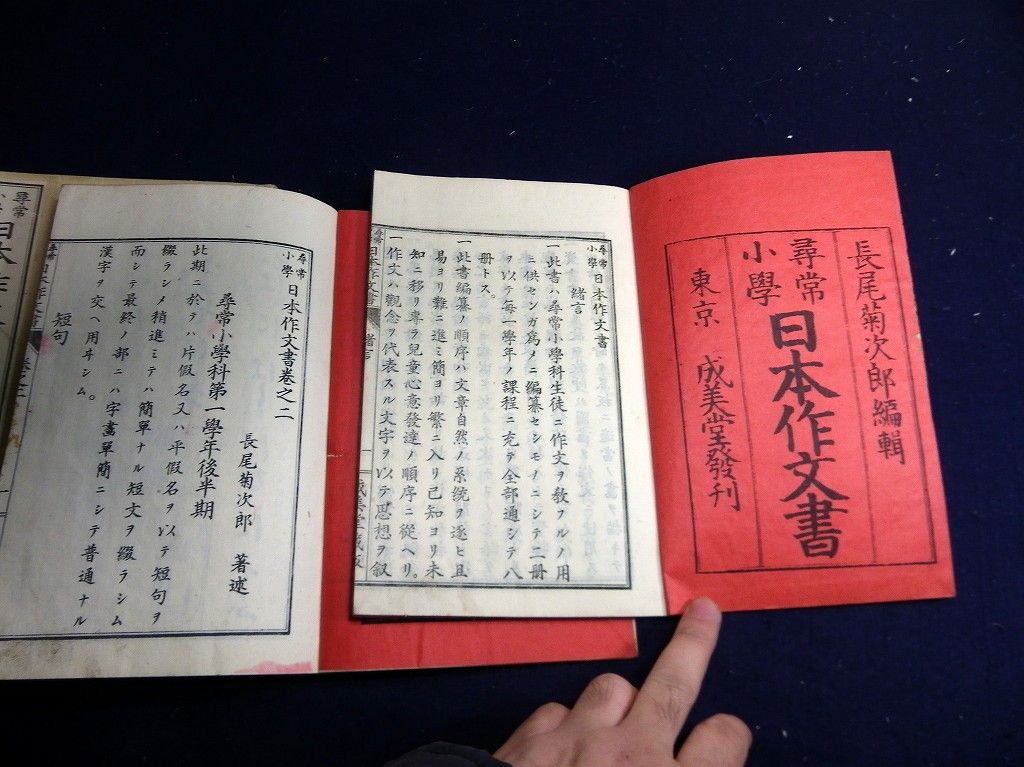 長尾菊次郎編輯
尋常
小學
日本作文書
東京 成美堂發刊
尋常
小學
日本作文書
緒言
一此書ハ尋常小學科生徒ニ作文ヲ教フルノ用
ニ供センガ爲メニ編纂セシモノニシテ二册
ヲ以テ毎一學年ノ課程ニ充テ全部通シテ八
册トス。
一此書編纂ノ順序ハ文章自然ノ系統ヲ逐ヒ且
易ヨリ難ニ進ミ簡ヨリ繁ニ入リ已知ヨリ未
知ニ移リ專ラ兒童心意發達ノ順序ニ從ヘリ。
一作文ハ觀念ヲ代表スル文字ヲ以テ思想ヲ叙
日本作文書
緒言
尋常
小學
日本作文書卷之二
長尾菊次郎 著述
尋常小學科第一學年後半期
此期ニ於テハ片假名又ハ平假名ヲ以テ短句ヲ
綴ラシメ稍進ミテハ簡單ナル短文ヲ綴ラシム
而シテ最終ノ部ニハ字畫單簡ニシテ普通ナル
漢字ヲ交ヘ用ヰシム。
短句
尋常
日本作